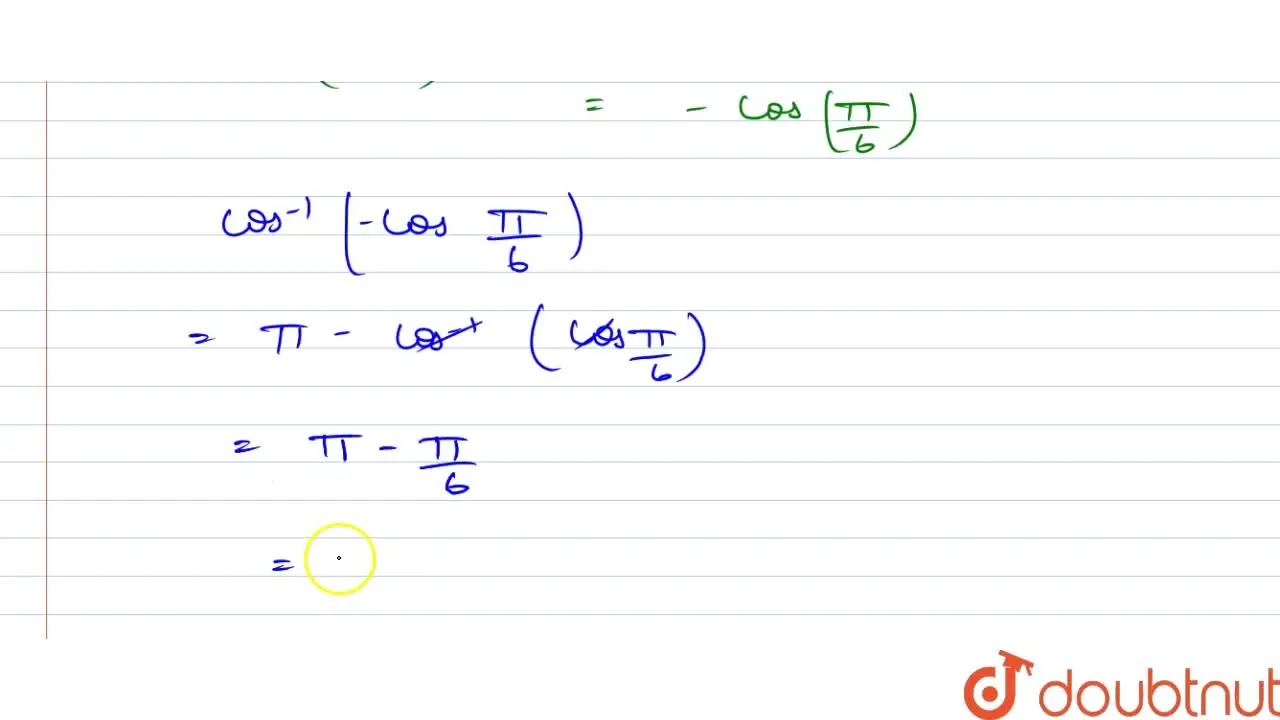 = - cos (π/6)
cos⁻¹ (-cos π/6)
= π - cos⁻¹ (cos π/6)
= π - π/6
=
doubtnut